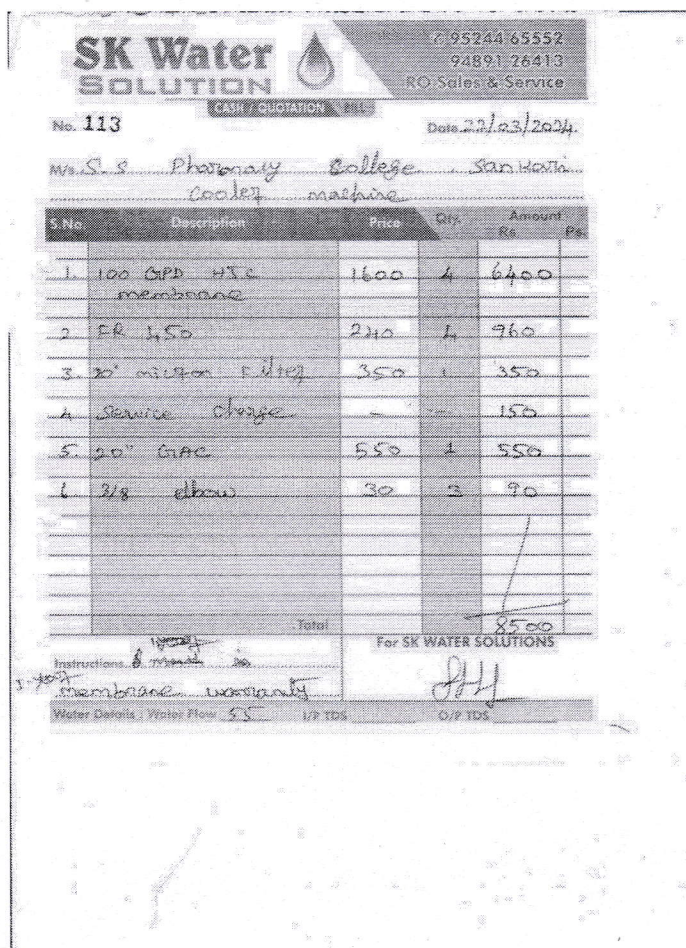 SK Water
SOLUTION
95244 65552
94891 26413
RO Sales & Service
CASH / QUOTATION BILL
No. 113
Date 22/03/2024
M/s. S.S Pharmacy College Sankari
Cooler machine
S.No. Description Price Qty. Amount Rs. Ps.
1. 100 GPD HJC membrane 1600 4 6400
2 FR 450 240 4 960
3. 20" micron Filter 350 1 350
4 Service Charge - - 150
5. 20" GAC 550 1 550
6 3/8 elbow 30 3 90
Total 8500
For SK WATER SOLUTIONS
Instructions
membrane warranty
Water Details : Water Flow 55 I/P TDS O/P TDS